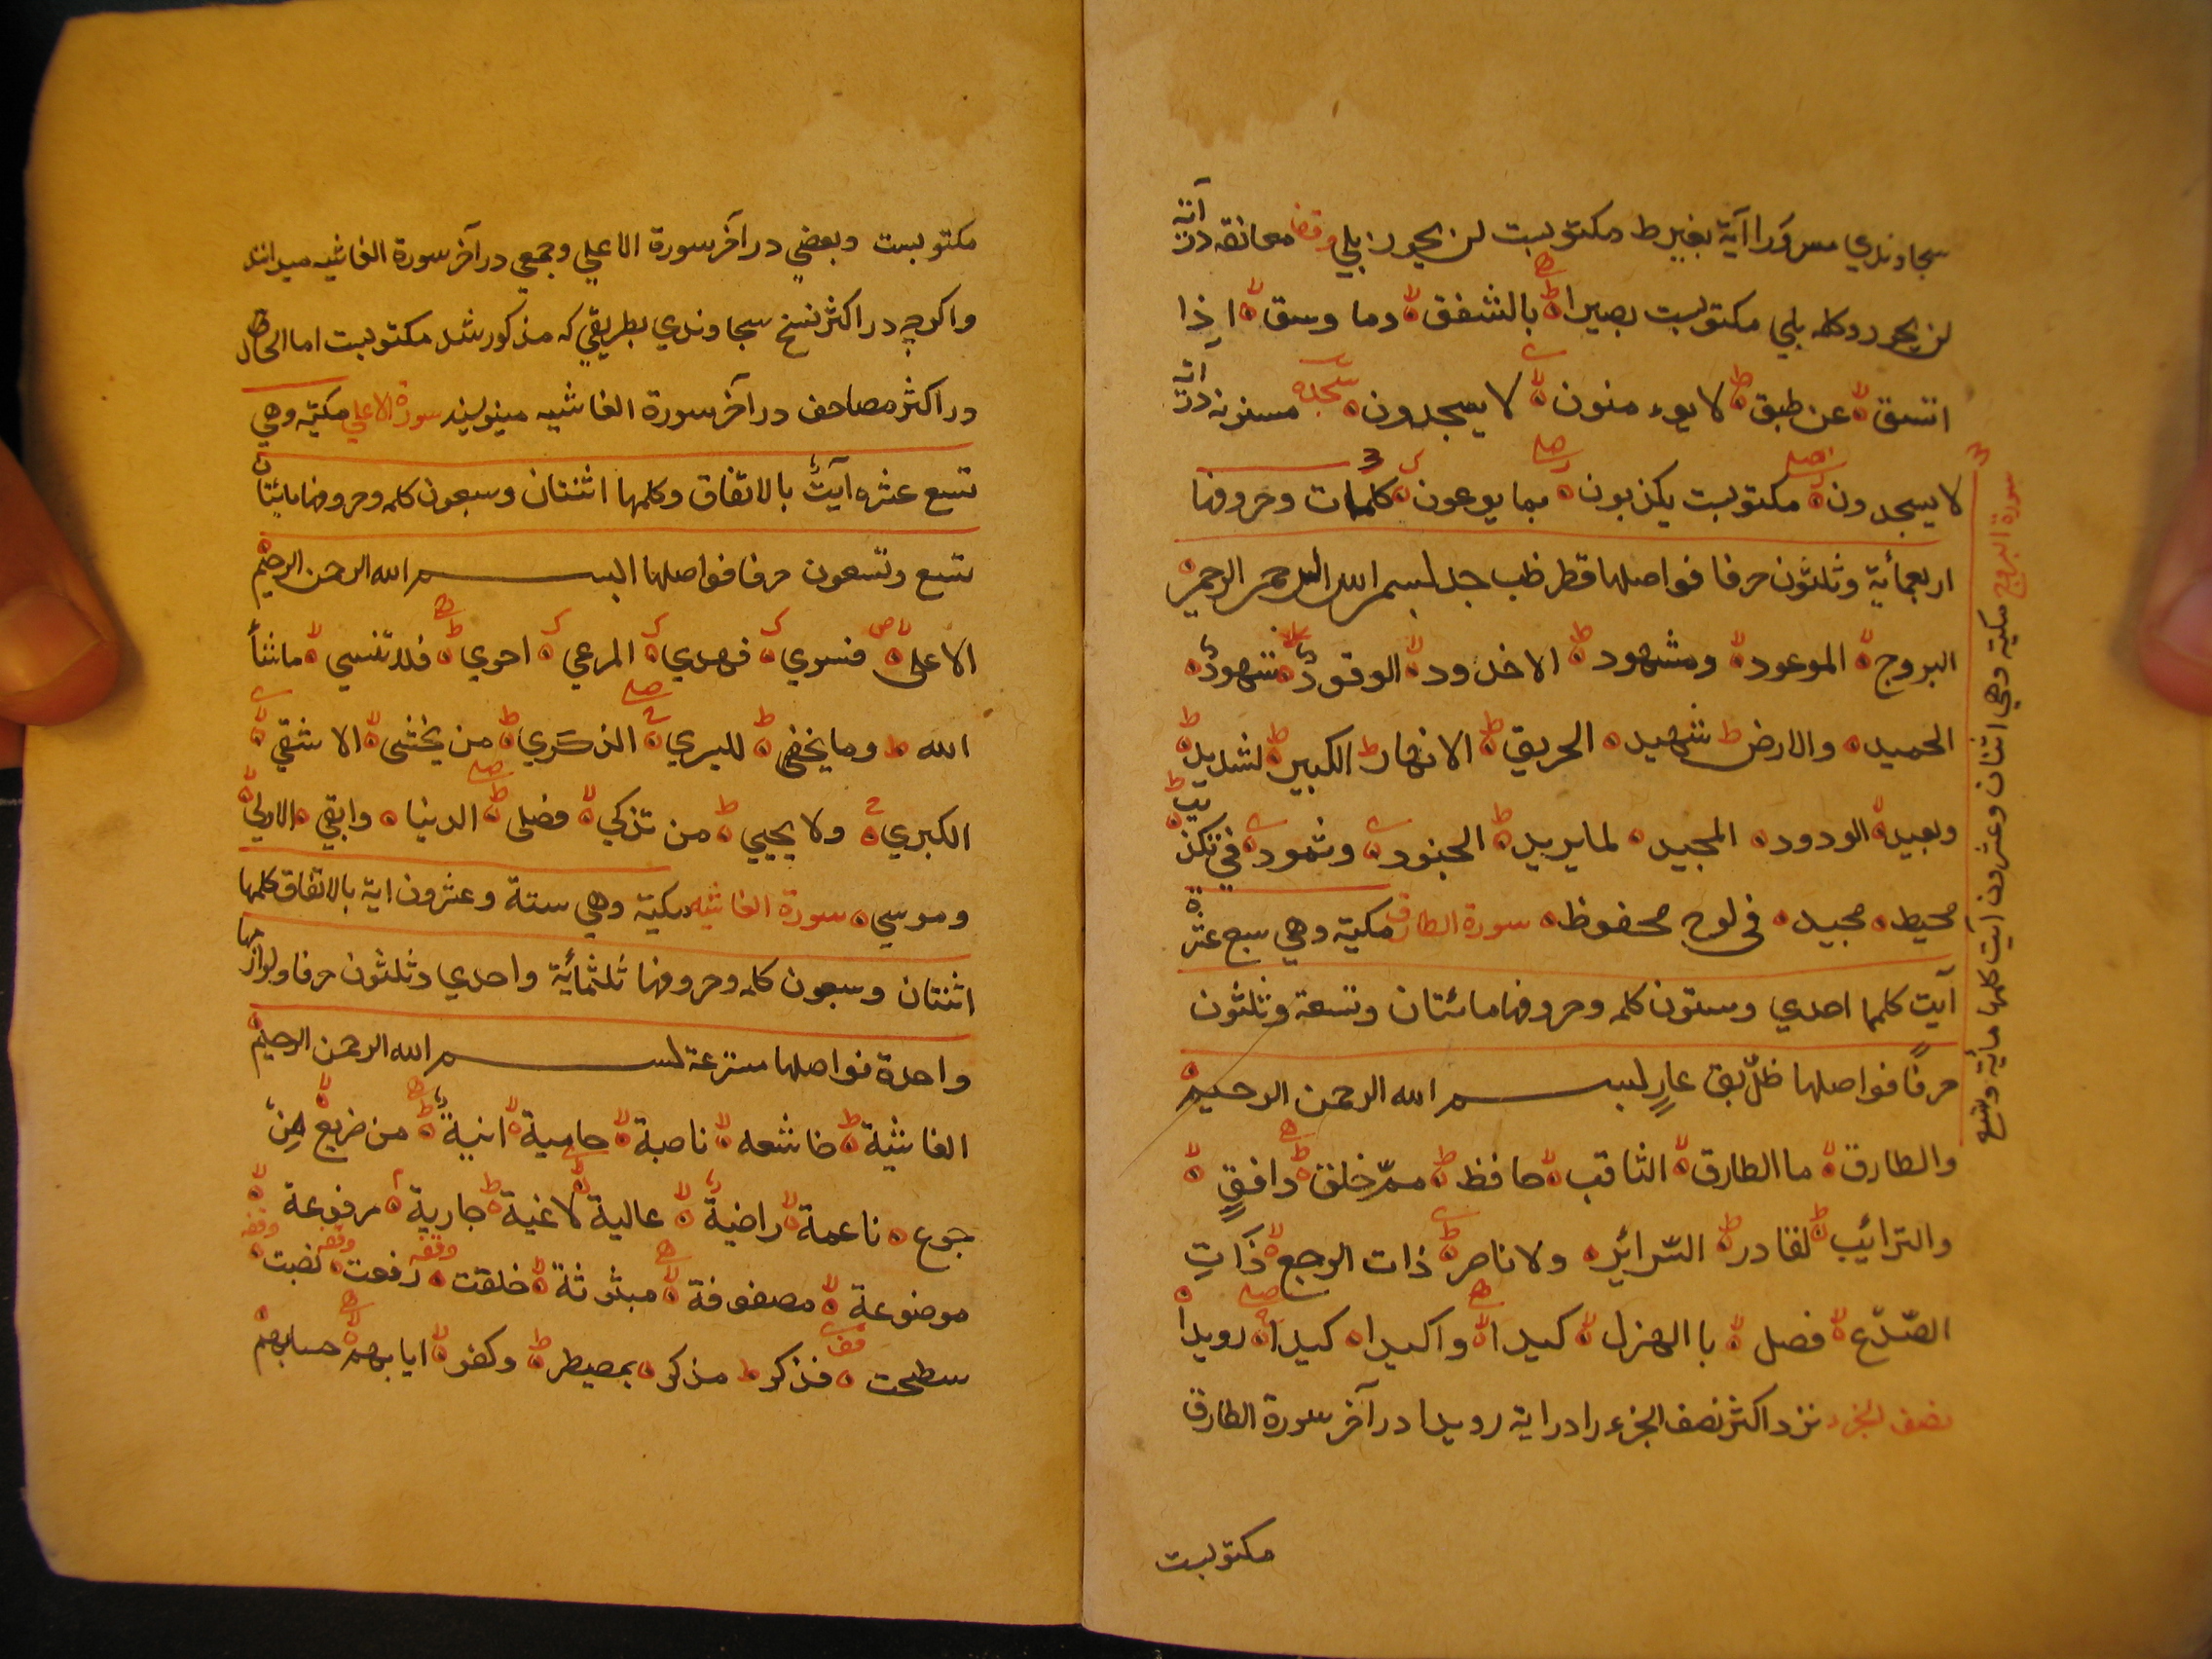 سجاوندي مسرورا آية بغير ط مكتوبست لن يحور ن بلي وقف معانقه در آية
لن يحور و كلمه بلي مكتوبست بصيرا بالشفق وما وسق اذا
اتسق عن طبق لا يوء منون لا يسجدون سجده مسنونه در اية
لا يسجدون مكتوبست يكذبون بما يوعون كلمات وحروفها
سورة البروج مكية وهي اثنتان وعشرون آيت كلمها مأية وتسع
اربعمأية وثلثون حرفا فواصلها قطر ظب جد بسم الله الرحمن الرحيم
البروج الموعود ومشهود الاخدود الوقود شهود
الحميد والارض شهيد الحريق الانهار الكبير لشديد
ويعيد الودود المجيد لما يريد الجنود وثمود في تكذيب
محيط مجيد في لوح محفوظ سورة الطارق مكية وهي سبع عشرة
آيت كلمها احدي وستون كلمه وحروفها مائتان وتسعة وثلثون
حرفًا فواصلها ظلّ بق عارٍ بسم الله الرحمن الرحيم
والطارق ما الطارق الثاقب حافظ ممّ خلق دافقٍ
والترائب لقادر السّرائر ولا ناصر ذات الرجع ذَاتِ
الصّدع فصل با الهزل كيدا واكيدا كيدا رويدا
نصف الجزء نزد اكثر نصف الجزء را در اية رويدا در آخر سورة الطارق
مكتوبست
مكتوبست وبعضي در آخر سورة الاعلي وجمعي در آخر سورة الغاشيه ميدانند
واكرچه در اكثر نسخ سجاوندي بطريقي كه مذكور شد مكتوبست اما الحال
در اكثر مصاحف در آخر سورة الغاشيه مينويسند سورة الاعلي مكية وهي
تسع عشره آيت بالاتفاق وكلمها اثنتان وسبعون كلمه وحروفها مائتان
تسع وتسعون حرفا فواصلها ا بسم الله الرحمن الرحيم
الاعلى فسوي فهدي المرعي احوي فلا تنسي ما شأ
الله وما يخفى لليسري الذكري من يخشى الاشقي
الكبري ولا يحيي من تزكي فصلى الدنيا وابقي الاولي
وموسي سورة الغاشيه مكية وهي ستة وعشرون اية بالاتفاق كلمها
اثنتان وسبعون كلمه وحروفها ثلثمأية واحدي وثلثون حرفا ولوازمها
واحدة فواصلها مترعة بسم الله الرحمن الرحيم
الغاشية خاشعه ناصبة حامية انية من ضريع من
جوع ناعمة راضية عالية لاغية جارية مرفوعة
موضوعة مصفوفة مبثوثة خلقت وقفه رفعت وقفه نصبت وقفه
سطحت قف فذكر مذكر بمصيطر وكفر ايابهم حسابهم